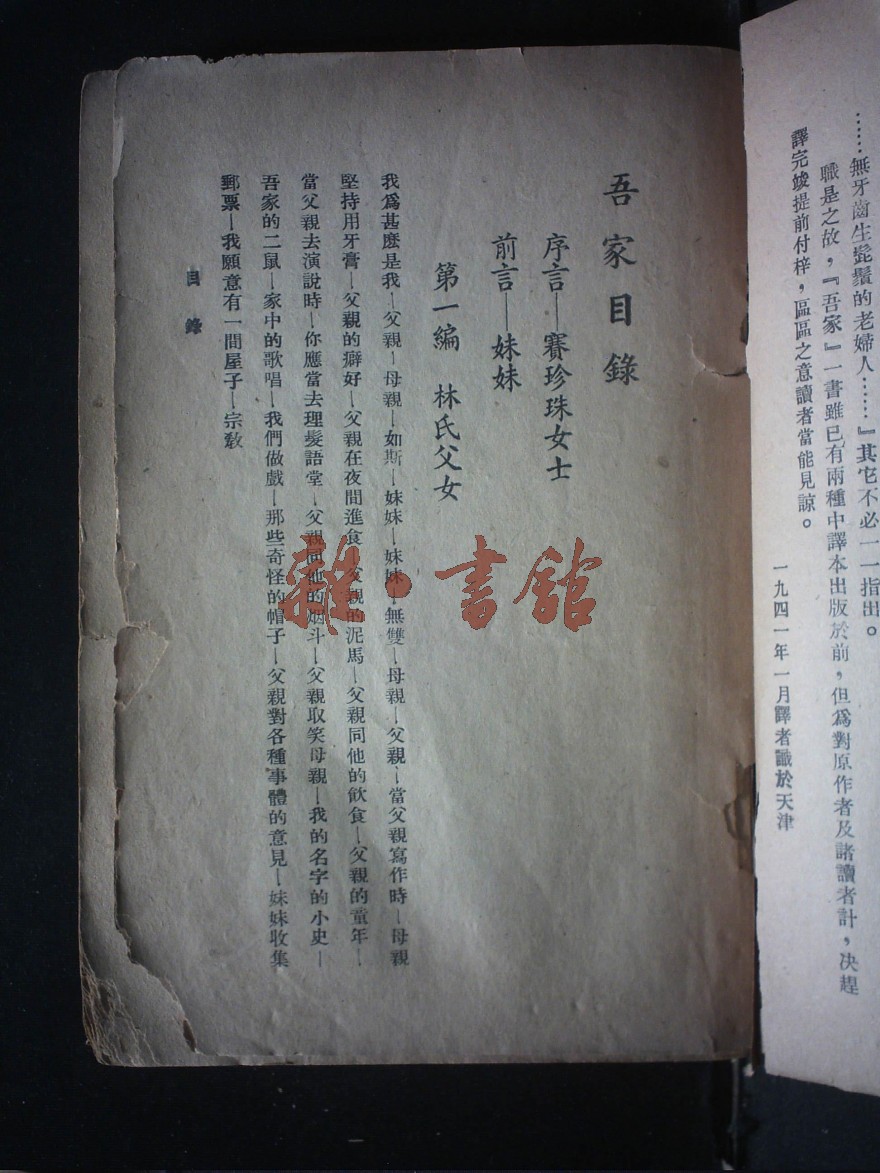 ……無牙齒生髭鬚的老婦人……』其它不必一一指出。
職是之故，『吾家』一書雖已有兩種中譯本出版於前，但爲對原作者及諸讀者計，决趕
譯完竣提前付梓，區區之意讀者當能見諒。
一九四一年一月譯者識於天津
吾家目錄
序言——賽珍珠女士
前言——妹妹
第一編　林氏父女
我爲甚麽是我—父親—母親—如斯—妹妹—妹妹—無雙—母親—父親—當父親寫作時—母親
堅持用牙膏—父親的癖好—父親在夜間進食—父親的泥馬—父親同他的飲食—父親的童年—
當父親去演說時—你應當去理髮語堂—父親同他的烟斗—父親取笑母親—我的名字的小史—
吾家的二鼠—家中的歌唱—我們做戲—那些奇怪的帽子—父親對各種事體的意見—妹妹收集
郵票—我願意有一間屋子—宗教
目錄
雜·書館